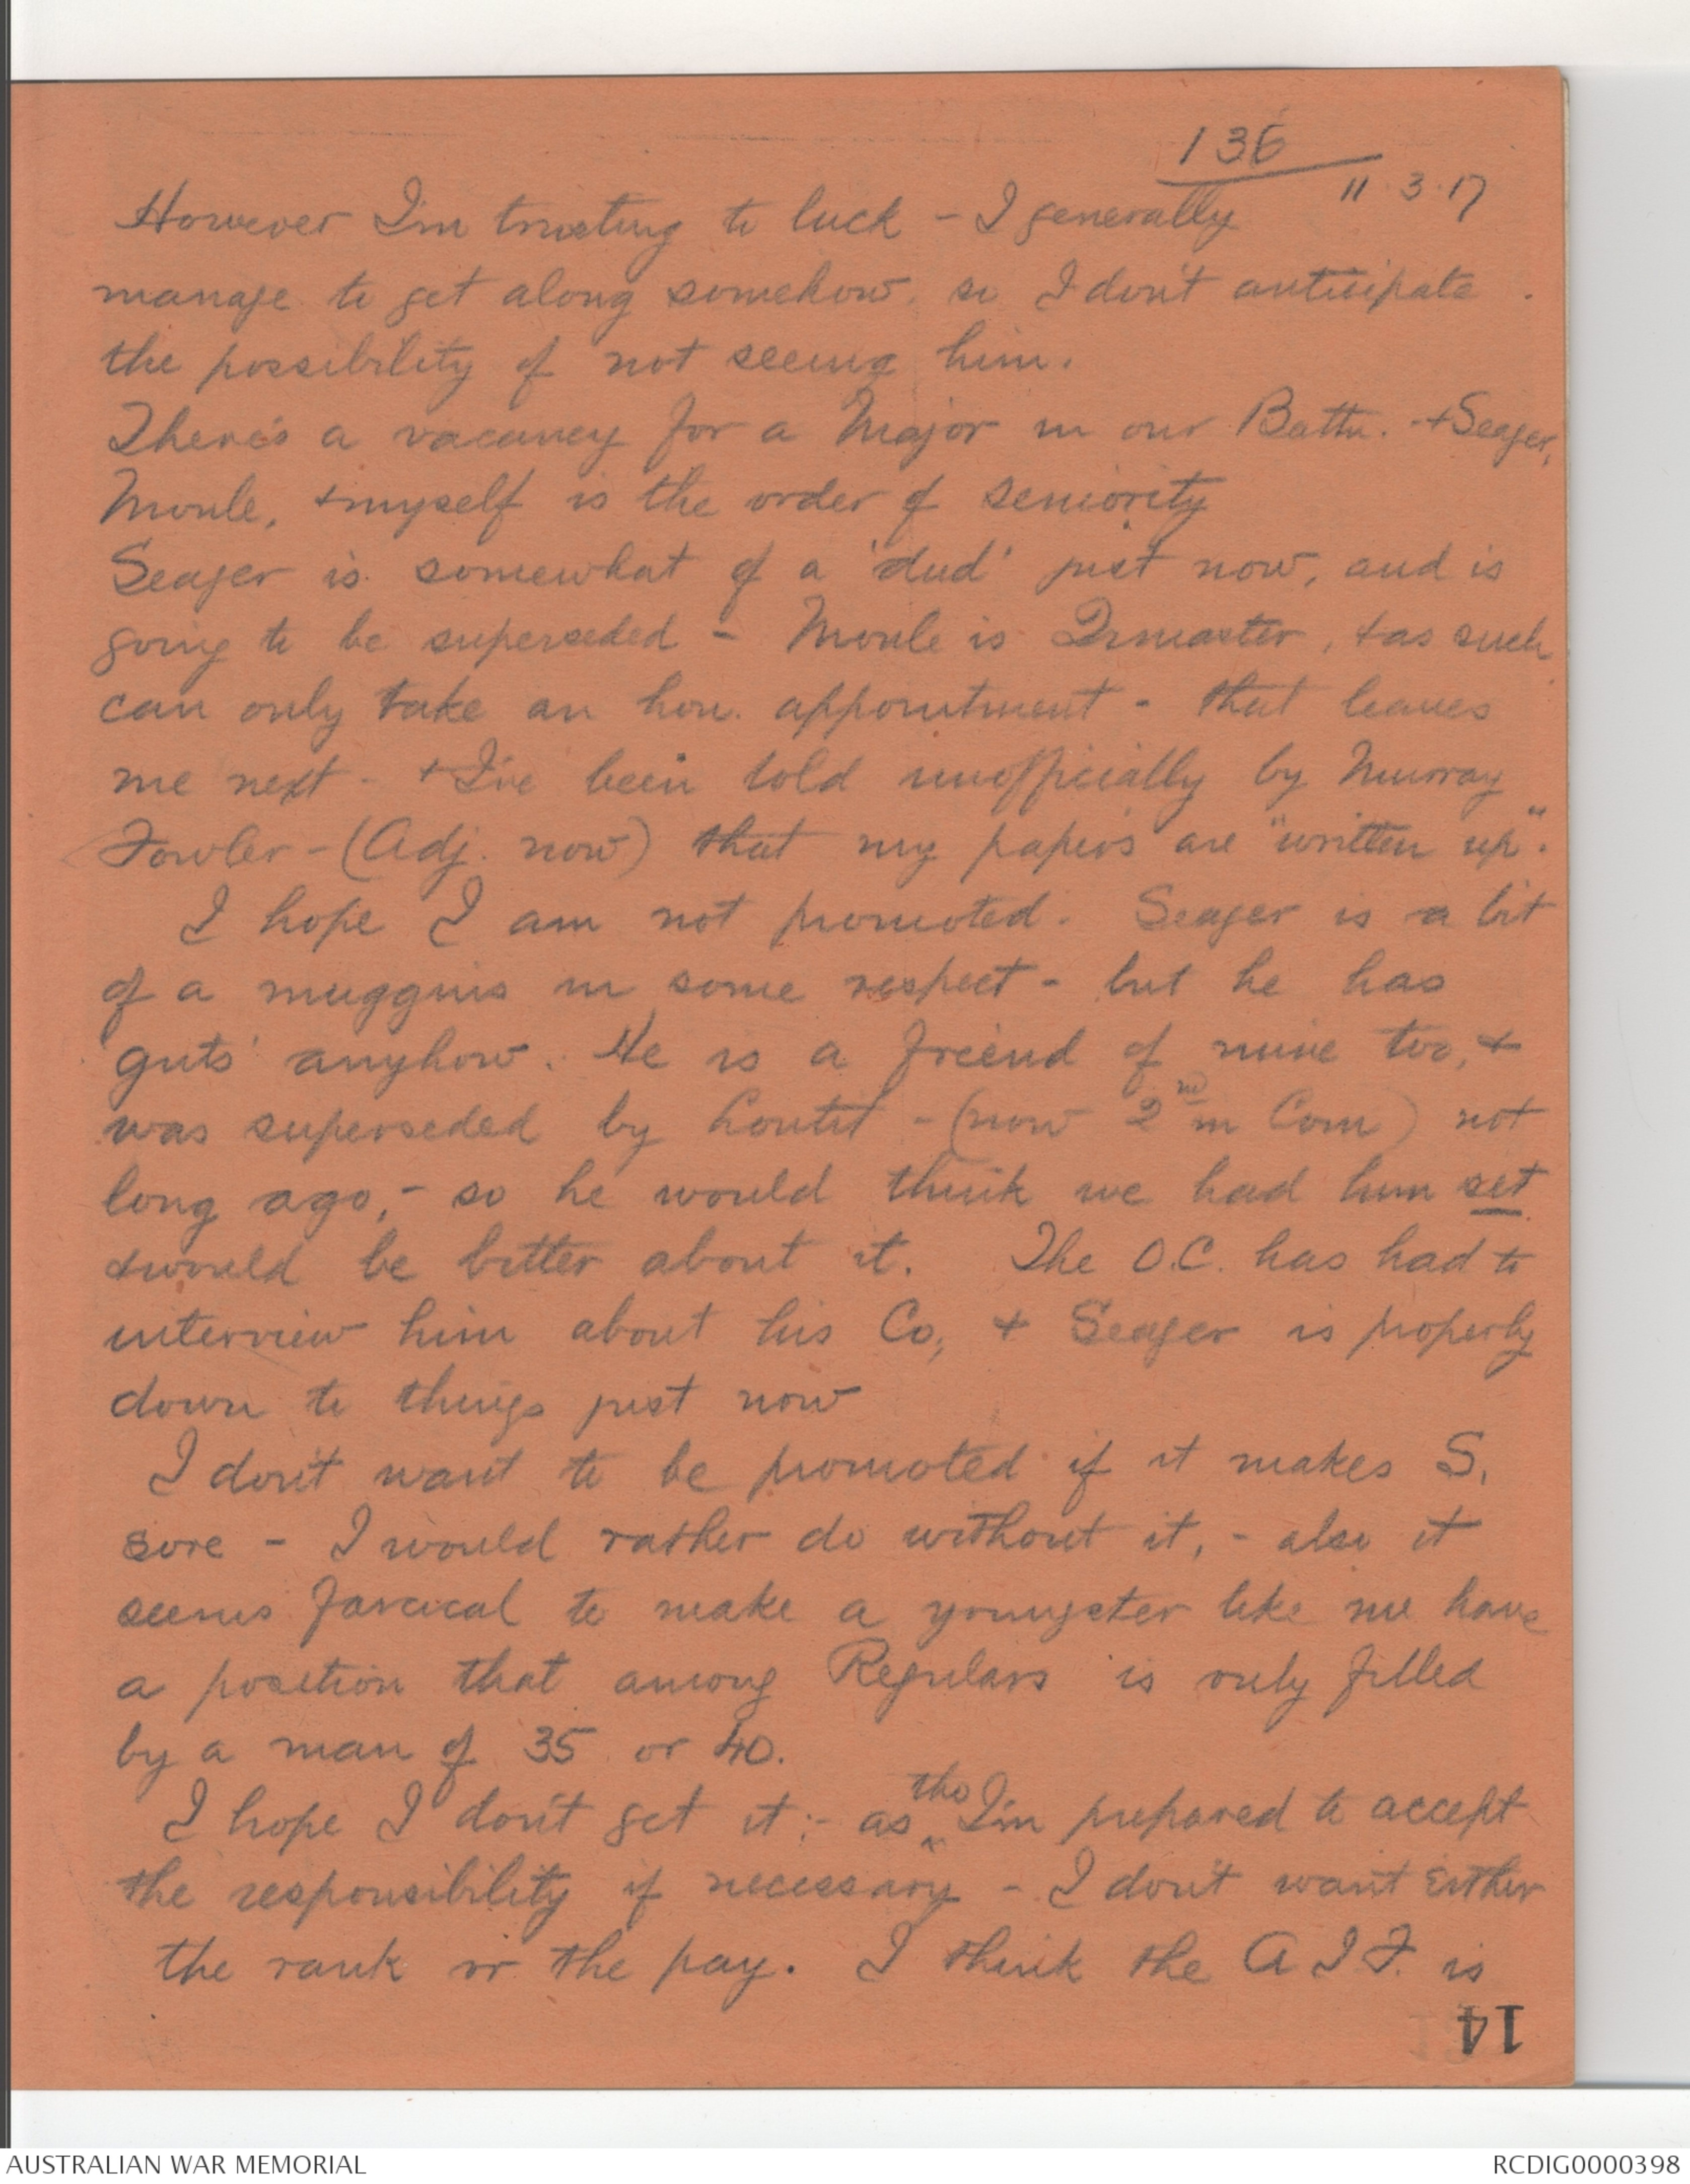 136
11.3.17
However I'm trusting to luck - I generally
manage to get along somehow, so I don't anticipate
the possibility of not seeing him.
There's a vacancy for a Major in our Battn. - + Seager,
Moule, + myself is the order of seniority
Seager is somewhat of a 'dud' just now, and is
going to be superseded - Moule is Qrmaster, + as such
can only take an hon. appointment - that leaves
me next - + I've been told unofficially by Murray
Fowler - (Adj. now) that my papers are "written up".
I hope I am not promoted. Seager is a bit
of a muggins in some respect - but he has
'guts' anyhow. He is a friend of mine too, +
was superseded by Loutit - (now 2nd in Com) not
long ago, - so he would think we had him set
+ would be bitter about it. The O.C. has had to
interview him about his Co, + Seager is properly
down to things just now
I don't want to be promoted if it makes S.
sore - I would rather do without it, - also it
seems farcical to make a youngster like me have
a position that among Regulars is only filled
by a man of 35 or 40.
I hope I don't get it; - as tho I'm prepared to accept
the responsibility if necessary - I don't want either
the rank or the pay. I think the A I F. is
14
AUSTRALIAN WAR MEMORIAL
RCDIG0000398